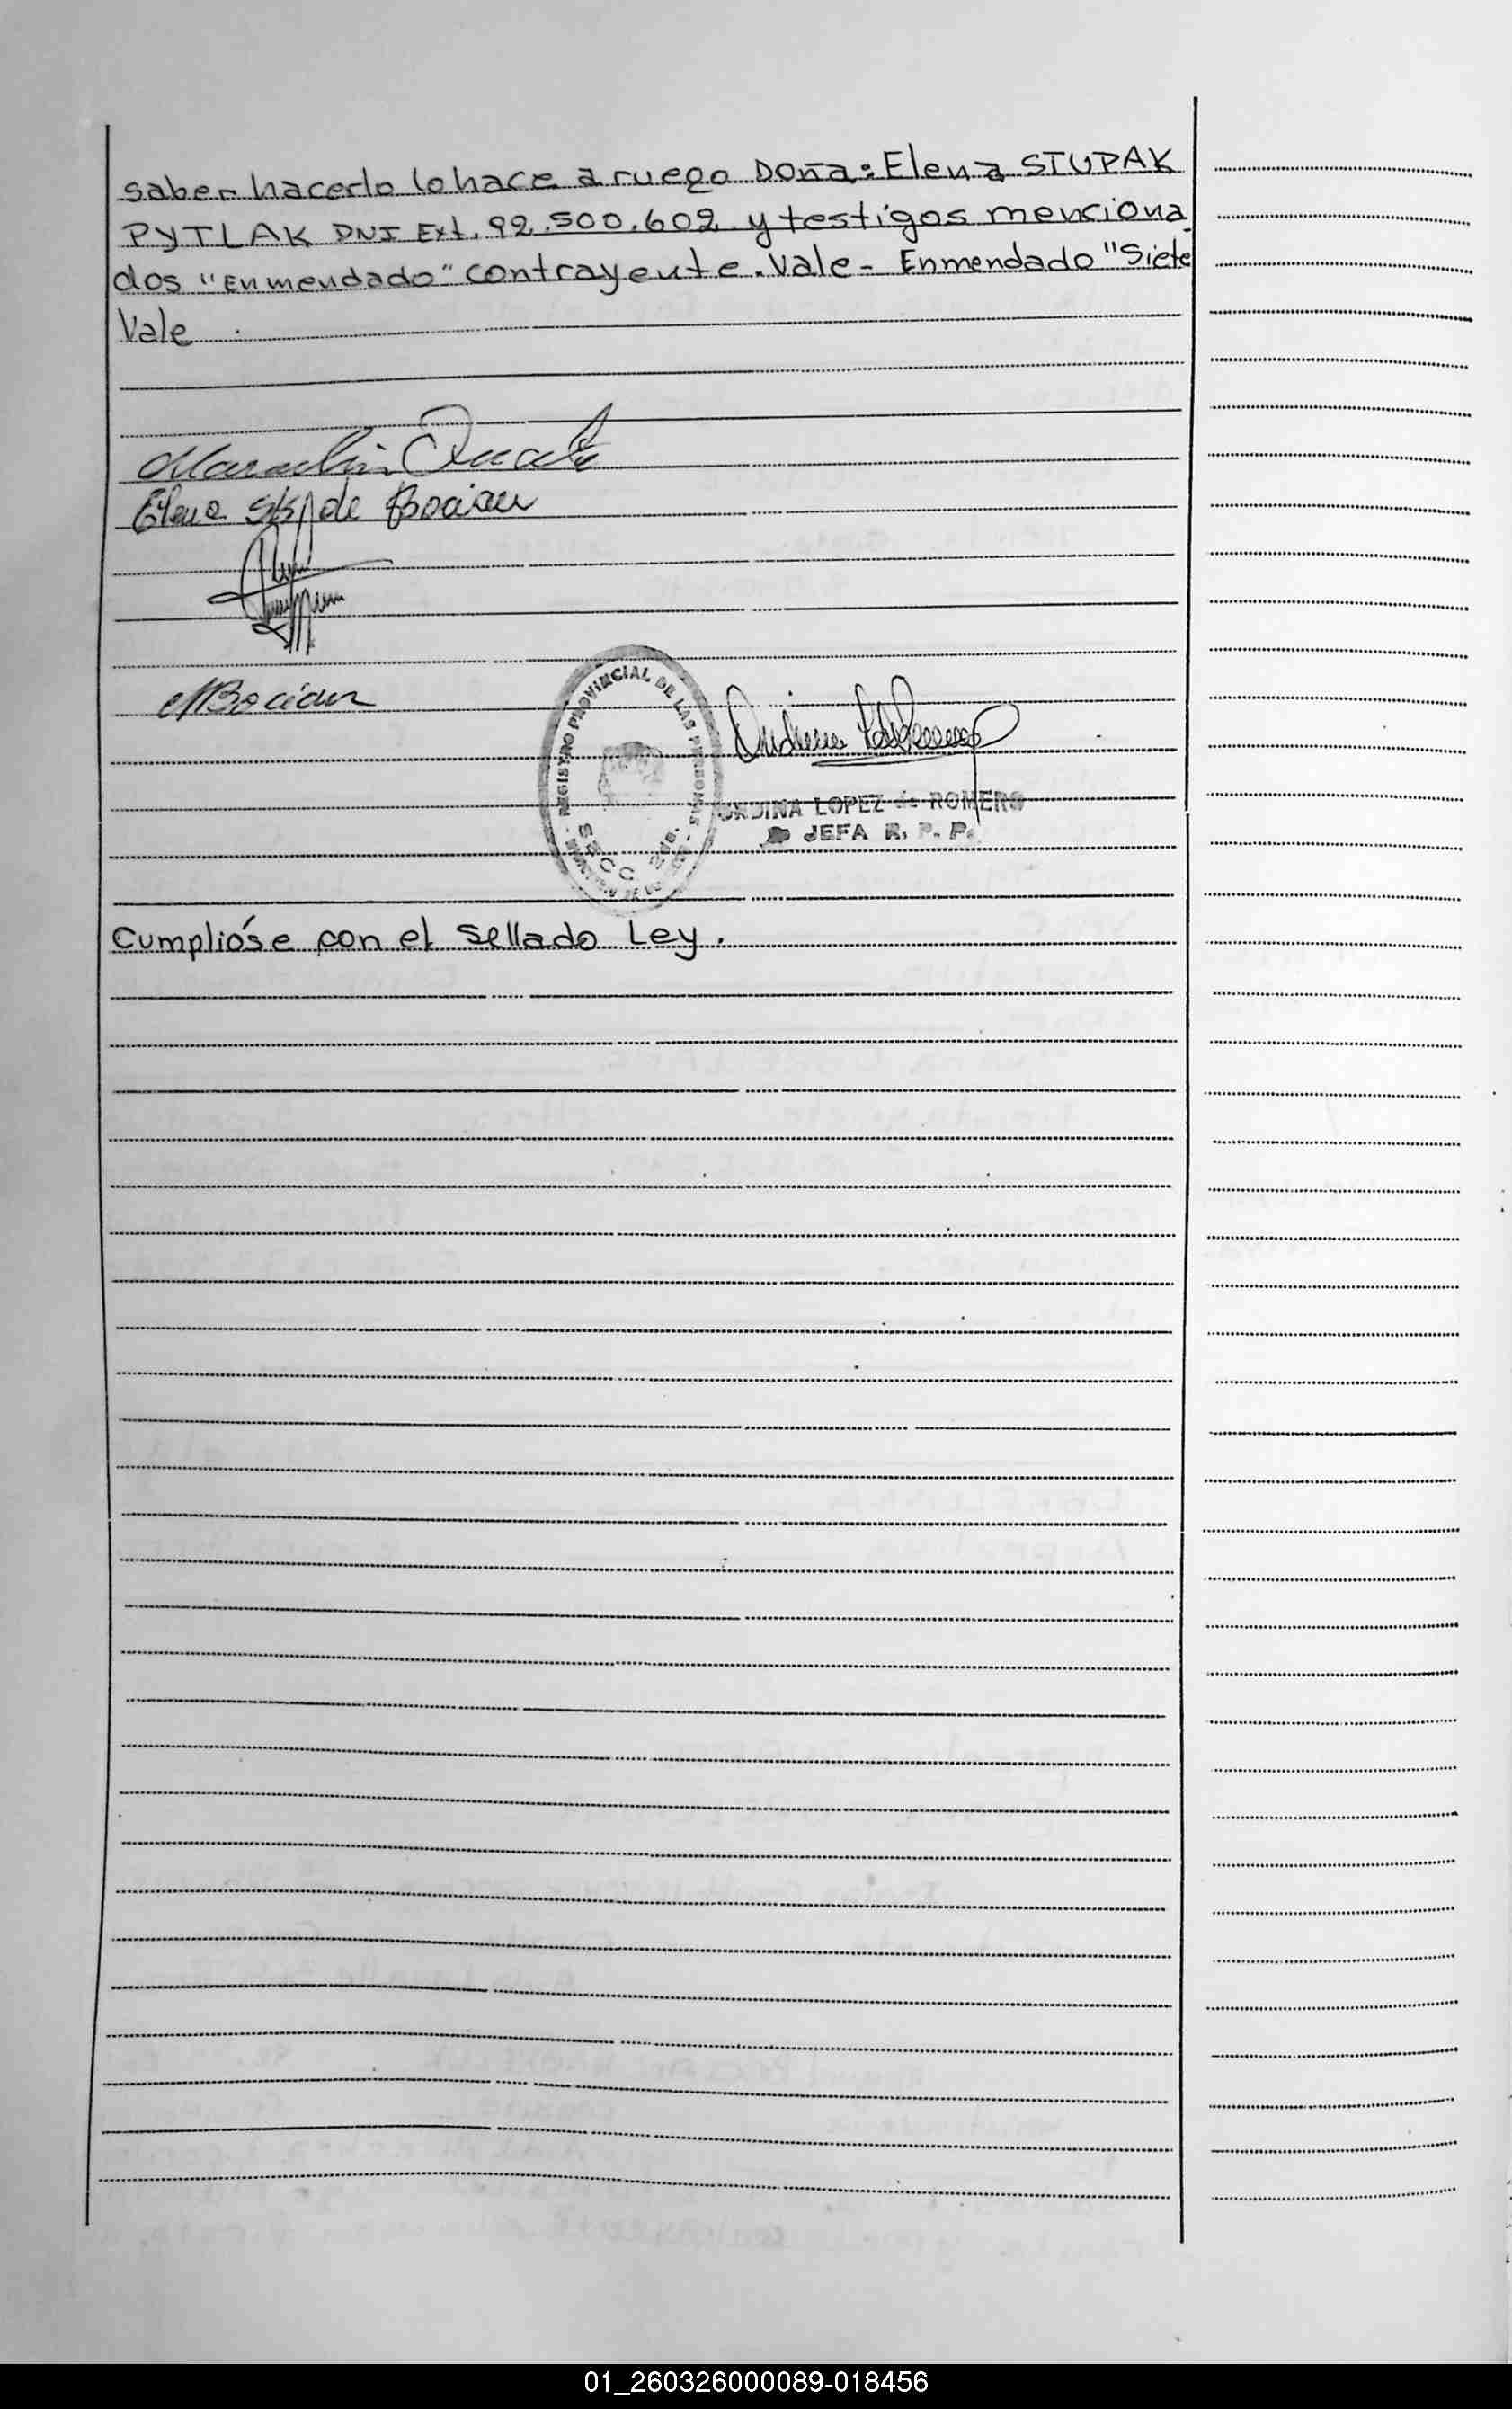 saber hacerlo lo hace a ruego Doña: Elena STUPAK
PYTLAK DNI Ext. 92.500.602 y testigos menciona
dos "Enmendado" contrayente. Vale - Enmendado "Siete
Vale
Elena de Bocian
Bocian
REGISTRO PROVINCIAL DE LAS PERSONAS
SECC
LOPEZ de ROMERO
JEFA R. P. P.
Cumplióse con el sellado Ley.
01_260326000089-018456